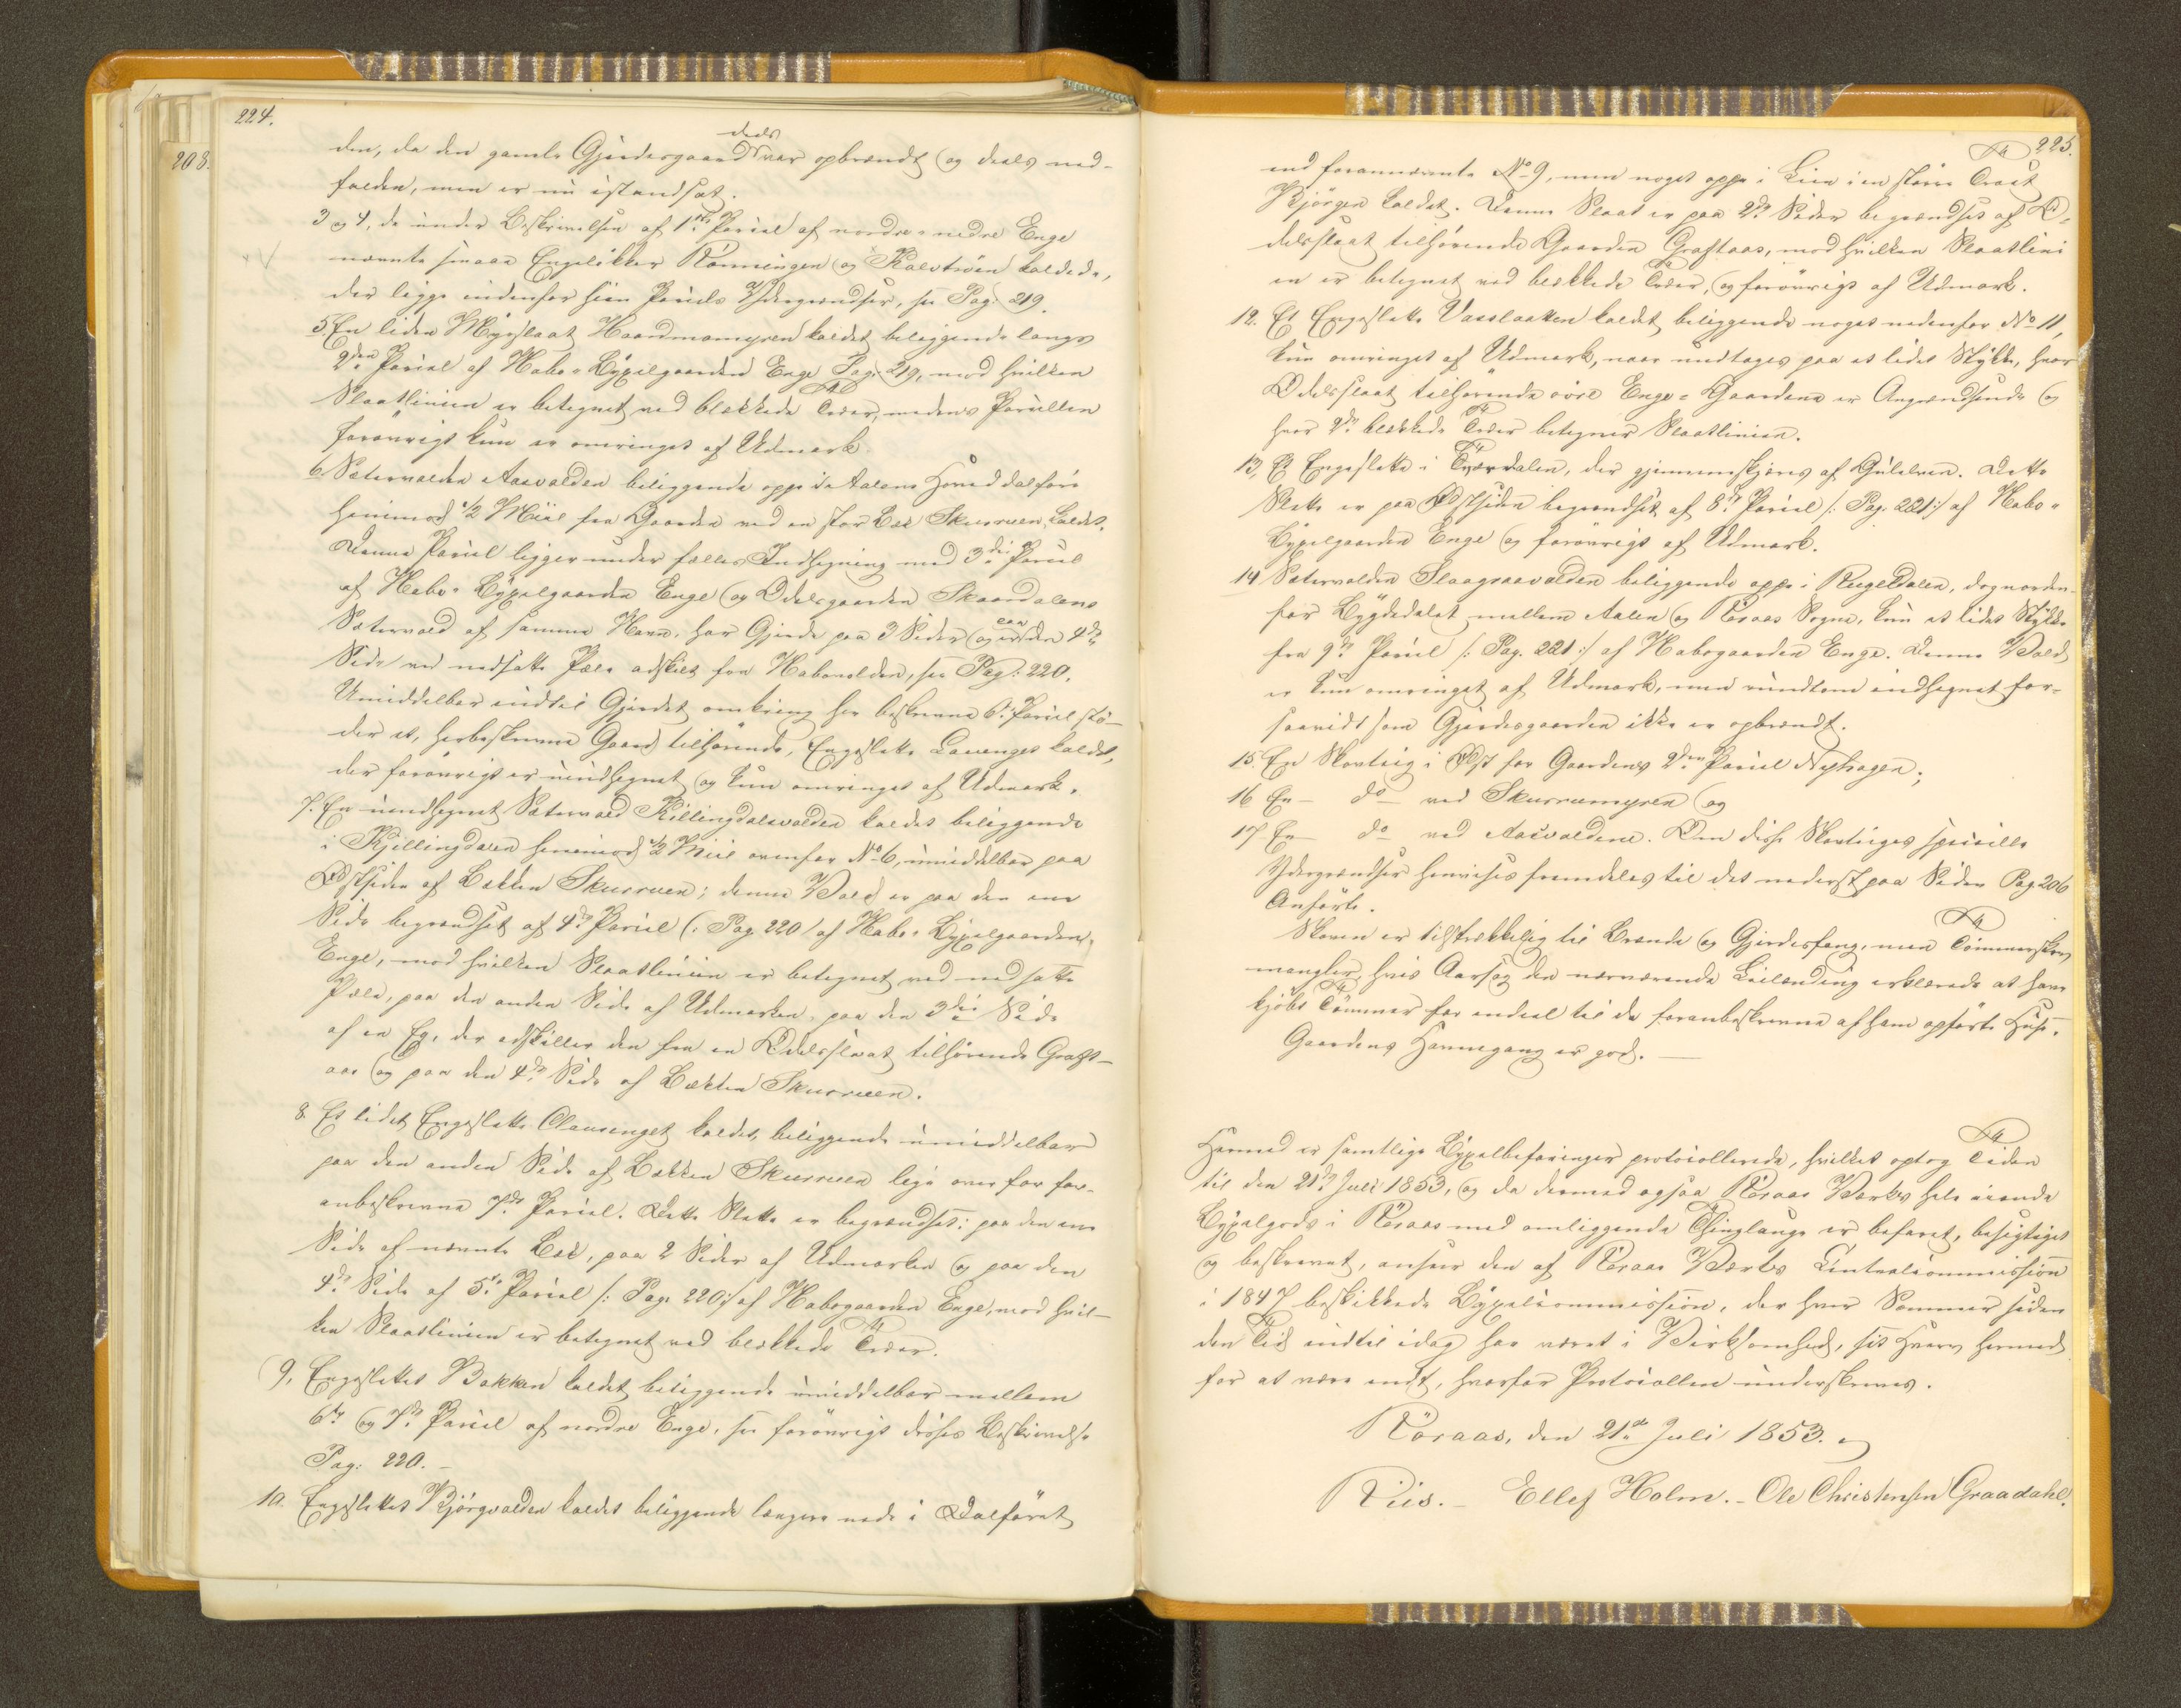 224.
208.
den, da den gamle Gjerdesgaard deels var opbrændt og deels ned-
falden, men er nu istandsat.
3 og 4, de under Beskrivelsen af 1ste Parcel af nordre-nedre Enge
nævnte smaae Engeløkker Rönningen og Kalvtröen kaldede,
der ligge indenfor hiin Parcels Ydergrændser, see Pag. 219.
5 En liden Myrslaat Haandmomyren kaldet beliggende langs
2den Parcel af Habo-Bygselgaarden Enge Pag. 219, mod hvilken
Slaatlinien er betegnet ved blekkede Træer, medens Parcellen
forövrigt kun er omringet af Udmark.
6 Sætervolden Aasvolden beliggende oppe i Aalens Hoveddalföre
henimod 1/2 Miil fra Gaarden ved en stor Bæk Skurruen kaldet.
Denne Parcel ligger under fælles Indhegning med 3die Parcel
af Habo-Bygselgaarden Enge og Odelsgaarden Skaardalens
Sætervold af samme Navn, har Gjerde paa 3 Sider og er paa den 4de
Side ved nedsatte Pæle adskilt fra Habovolden, see Pag: 220.
Umiddelbar indtil Gjerdet omkring her beskrevne 6te Parcel stö-
der et, herbeskrevne Gaard tilhörende, Engeslette Lauenget kaldet,
der forövrigt er uindhegnet og kun omringet af Udmark.
7. En uindhegnet Sætervold Killingdalsvolden kaldet beliggende
i Kjillingdalen henimod 1/2 Miil ovenfor No 6, umiddelbar paa
Östsiden af Bækken Skurruen; denne Vold er paa den ene
Side begrændset af 4de Parcel (: Pag 220 / af Habo-Bygselgaarden
Enge, mod hvilken Slaatlinien er betegnet ved nedsatte
Pæle, paa den anden Side af Udmarken, paa den 3die Side
af en Eg, der adskiller den fra en Odelsslaat tilhörende Graft-
aas og paa den 4de Side af Bækken Skurruen.
8. Et lidet Engeslette Clausenget kaldet, beliggende umiddelbar
paa den anden Side af Bækken Skurruen lige over for for-
anbeskrevne 7de Parcel. Dette Slette er begrændset: paa den ene
Side af nævnte Bæk, paa 2 Sider af Udmarken og paa den
4de Side af 5te Parcel /: Pag. 220 :/ af Habogaarden Enge, mod hvil-
ken Slaatlinien er betegnet ved blekkede Træer.
9. Engeslettet Bakken kaldet beliggende umiddelbar mellem
6te og 7de Parcel af nordre Enge, see forövrigt disses Beskrivelse
Pag: 220. -
10. Engeslettet Björgvolden kaldet beliggende længere nede i Dalföret
225.
end forannævnte No 9, men noget oppe i Lien i en större Tract
Björgen kaldet. Denne Slaat er paa 2de Sider begrændset af O-
delsslaat tilhörende Gaarden Graftaas, mod hvilken Slaatlini
en er betegnet ved blekkede Træer, og forövrigt af Udmark.
12. Et Engeslette Vasslaatten kaldet beliggende noget nedenfor No 11,
kun omringet af Udmark, naar undtages paa et lidet Stykke, hvor
Odelsslaat tilhörende övre Enge-Gaardene er Angrændsende og
hvor 2de blekkede Træer betegner Slaatlinien.
13, Et Engeslette i Tverrdalen, der gjennemskjæres af Gulelven. Dette
Slette er paa Östsiden begrændset af 8de Parcel /: Pag. 221 :/ af Habo-
Bygselgaarden Enge og forövrigt af Udmark.
14 Sætervolden Slaagraavolden beliggende oppe i Rugeldalen, dog norden-
for Bygdedelet mellem Aalen og Röraas Sogne, kun et lidet Stykke
fra 9de Parcel /: Pag. 221 :/ af Habogaarden Enge. Denne Vold
er kun omringet af Udmark, men rundtom indhegnet for-
saavidt som Gjerdesgaarden ikke er opbrændt.
15. En Skovteig i Öst for Gaardens 2den Parcel Nyhagen;
16 En - do - ved Skurruemyren og
17 En - do ved Aasvoldene. Om disse Skovteiges specielle
Ydergrændser henvises fremdeles til det nederst paa Siden Pag. 206
Anförte.
Skoven er tilstrækkelig til Brænde og Gjerdesfang, men Tömmerskov
mangler, hvis Aarsag den nærværende Leilænding erklærede at have
kjöbt Tömmer for endeel til de foranbeskrevne af ham opförte Huse.
Gaardens Havnegang er god. -
Hermed er samtlige Bygselbefaringer protocollerede, hvilket optog Tiden
til den 21de Juli 1853, og da dermed ogsaa Röraas Værks hele eiende
Bygselgods i Röraas med omliggende Thinglauge er befaret, besigtiget
og beskrevet, anseer den af Röraas Værks Centralcommission
i 1847 beskikkede Bygselcommission, der hver Sommer siden
den Tid indtil idag har været i Virksomhed, sit Hverv hermed
for at være endt, hvorfor Protocollen underskrives.
Röraas, den 21de Juli 1853.
Riis. - Ellef Holm. - Ole Christensen Graadahl.